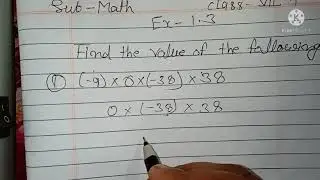 Sub-Math Class-VII
Ex-1.3
Find the value of the following
① (-9) × 0 × (-38) × 38
0 × (-38) × 38
KINEMASTER